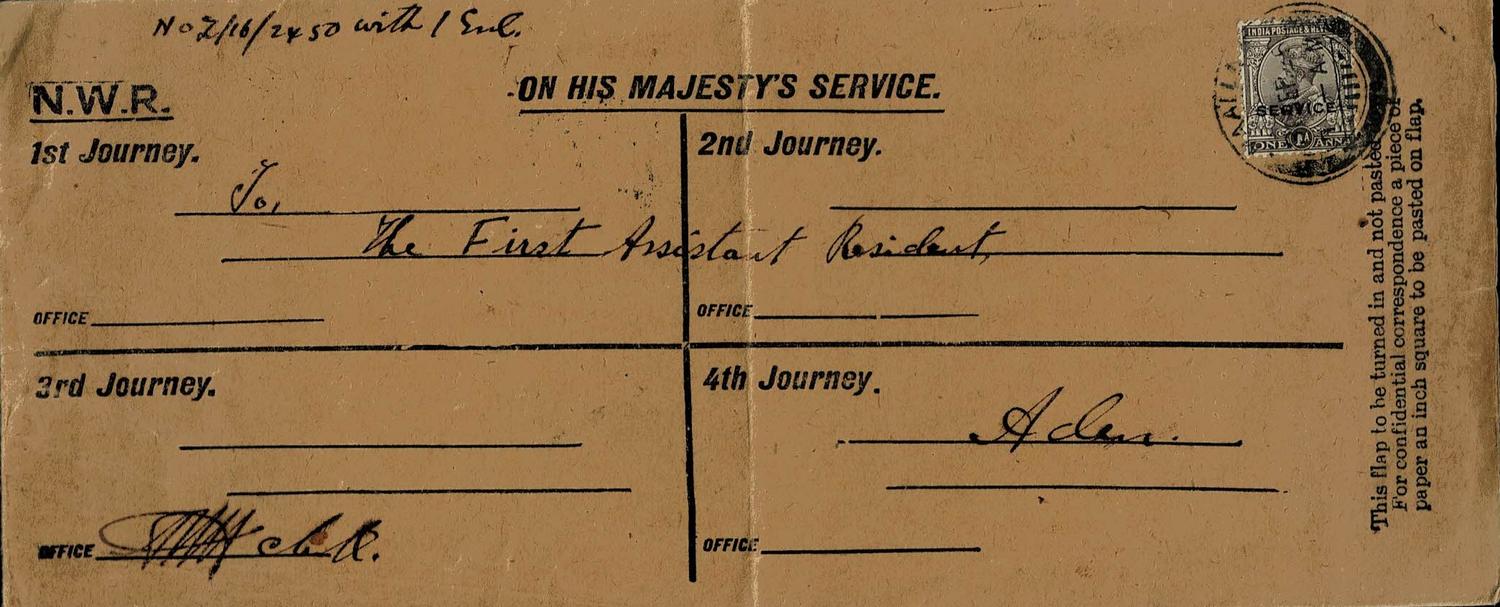 No 7/16/2450 with 1 Enl.
N.W.R.
ON HIS MAJESTY'S SERVICE.
1st Journey.
2nd Journey.
To,
The First Assistant Resident,
OFFICE
OFFICE
3rd Journey.
4th Journey.
Aden.
OFFICE
OFFICE
INDIA POSTAGE &
SERVICE
ONE ANNA
This flap to be turned in and not pasted
For confidential correspondence a piece of
paper an inch square to be pasted on flap.